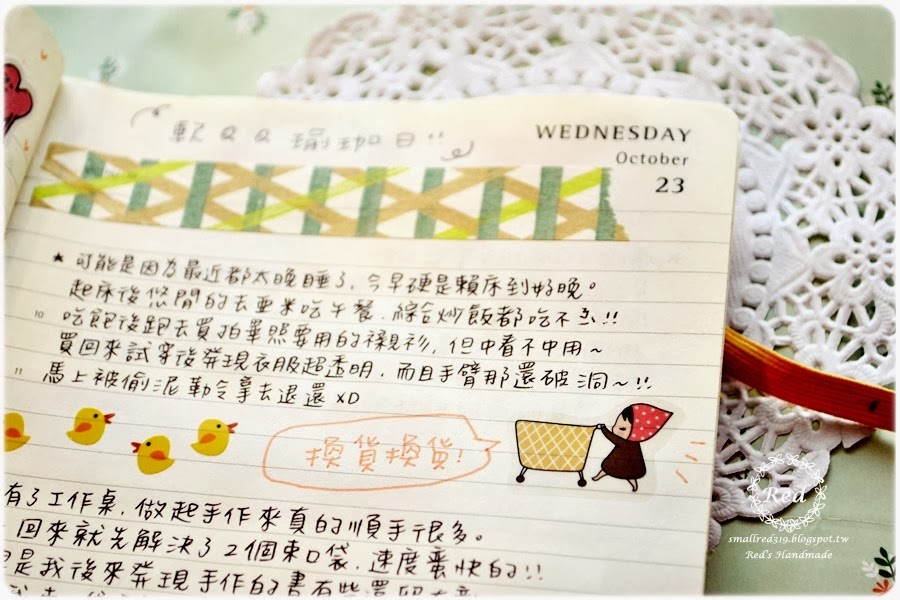 軟QQ瑜珈日!!
WEDNESDAY
October
23
★可能是因為最近都太晚睡了,今早硬是賴床到好晚。
起床後悠閒的去亜米吃午餐,綜合炒飯都吃不急!!
10 吃飽後跑去買拍畢照要用的襯衫,但中看不中用~
買回來試穿後發現衣服超透明,而且手臂那還破洞~!!
11 馬上被偷泥勒令拿去退還XD
換貨換貨!
有了工作桌,做起手作來真的順手很多。
回來就先解決了2個束口袋,速度蠻快的!!
是我後來發現手作的書有些還
Red
smallred319.blogspot.tw
Red's Handmade